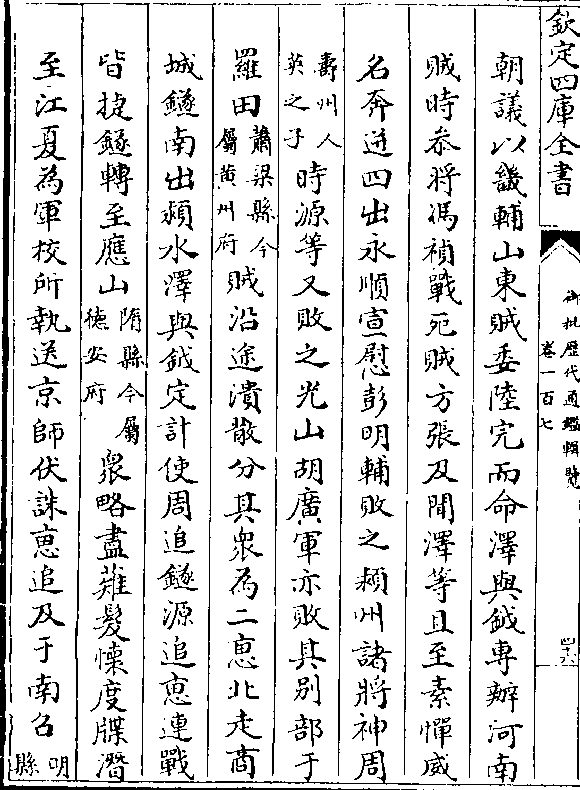 欽定四庫全書
御批歷代通鑑輯覽
卷一百七
朝議以畿輔山東賊委陸完而命澤與鉞專辦河南
賊時叅將馮禎戰死賊方張及聞澤等且至素憚威
名奔迸四出永順宣慰彭明輔敗之潁州諸將神周
壽州人英之子時源等又敗之光山胡廣軍亦敗其别部于
羅田蕭梁縣今屬黄州府賊沿途潰散分其衆為二恵北走商
城鐩南出潁水澤與鉞定計使周追鐩源追恵連戰
皆捷鐩轉至應山隋縣今屬德安府衆略盡薙髮懷度牒潛
至江夏為軍校所執送京師伏誅恵追及于南召明縣